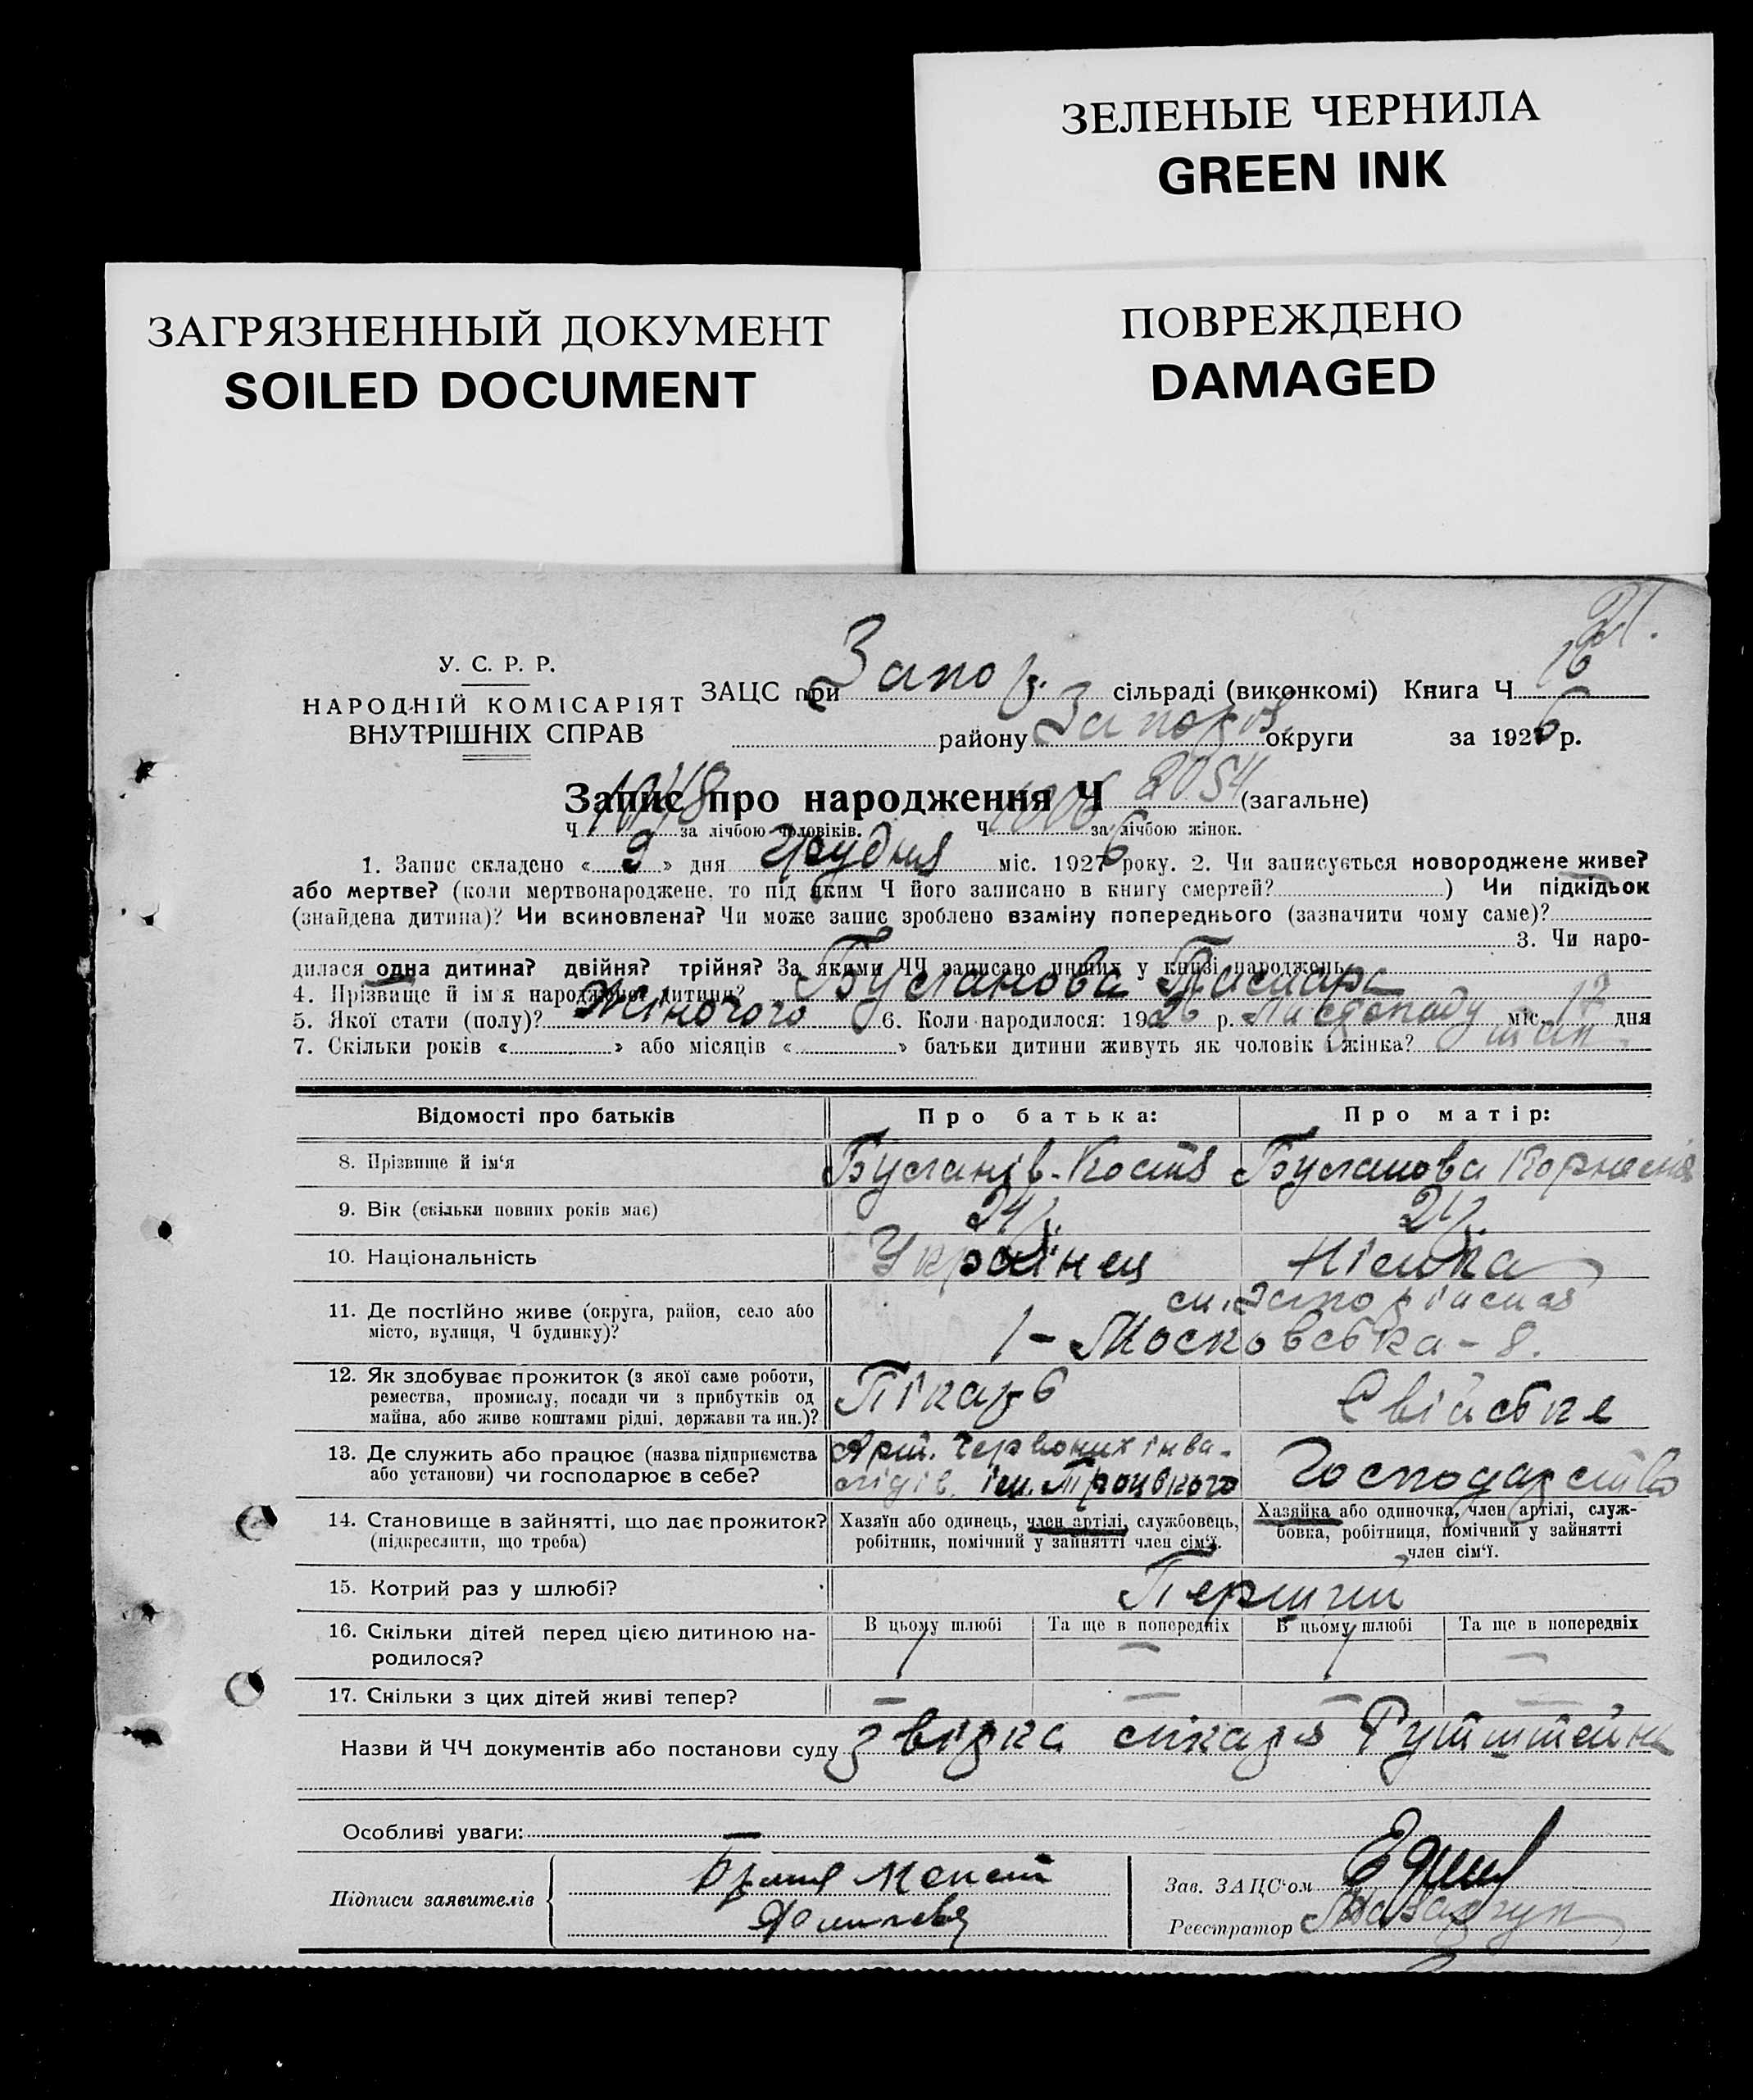 ЗЕЛЕНЫЕ ЧЕРНИЛА
GREEN INK
ЗАГРЯЗНЕННЫЙ ДОКУМЕНТ
SOILED DOCUMENT
ПОВРЕЖДЕНО
DAMAGED
У. С. Р. Р.
НАРОДНІЙ КОМІСАРІЯТ
ВНУТРІШНІХ СПРАВ
ЗАЦС при Запор. сільраді (виконкомі) Книга Ч 16
району Запоріз. округи за 1926 р.
Запис про народження Ч 2054 (загальне)
Ч 1048 за лічбою чоловіків. Ч 1006 за лічбою жінок.
1. Запис складено « 9 » дня Грудня міс. 1926 року. 2. Чи записується новороджене живе?
або мертве? (коли мертвонароджене, то під яким Ч його записано в книгу смертей? ) Чи підкідьок
(знайдена дитина)? Чи всиновлена? Чи може запис зроблено взаміну попереднього (зазначити чому саме)?
3. Чи наро-
дилася одна дитина? двійня? трійня? За якими ЧЧ записано инших у книзі народжень
4. Прізвище й ім'я народженої дитини? Бусланова Тамара
5. Якої стати (полу)? Жіночого 6. Коли народилося: 1926 р. Листопаду міс. 12 дня
7. Скільки років « » або місяців « » батьки дитини живуть як чоловік і жінка?
Відомості про батьків
Про батька:
Про матір:
8. Прізвище й ім'я
Бусланів - Костя
Бусланова Корнелія
9. Вік (скільки повних років має)
24 р.
21 р.
10. Національність
Українец
Німка
11. Де постійно живе (округа, район, село або
місто, вулиця, Ч будинку)?
м. Запоріжжя
1 - Московська - 8.
12. Як здобуває прожиток (з якої саме роботи,
ремества, промислу, посади чи з прибутків од
майна, або живе коштами рідні, держави та ин.)?
Пікарь
Свійське
13. Де служить або працює (назва підприємства
або установи) чи господарює в себе?
Арт. Червоних інва-
лідів. ім. Троцького
Господарство
14. Становище в зайнятті, що дає прожиток?
(підкреслити, що треба)
Хазяїн або одинець, член артілі, службовець,
робітник, помічний у зайнятті член сім'ї.
Хазяйка або одиночка, член артілі, служ-
бовка, робітниця, помічний у зайнятті
член сім'ї.
15. Котрий раз у шлюбі?
Перший
16. Скільки дітей перед цією дитиною на-
родилося?
В цьому шлюбі
Та ще в попередніх
В цьому шлюбі
Та ще в попередніх
1 — 1 —
17. Скільки з цих дітей живі тепер?
— — — —
Назви й ЧЧ документів або постанови суду
звідка лікаря Рутштейна
Особливі уваги: —
Підписи заявителів
Зав. ЗАЦС'ом
Реєстратор